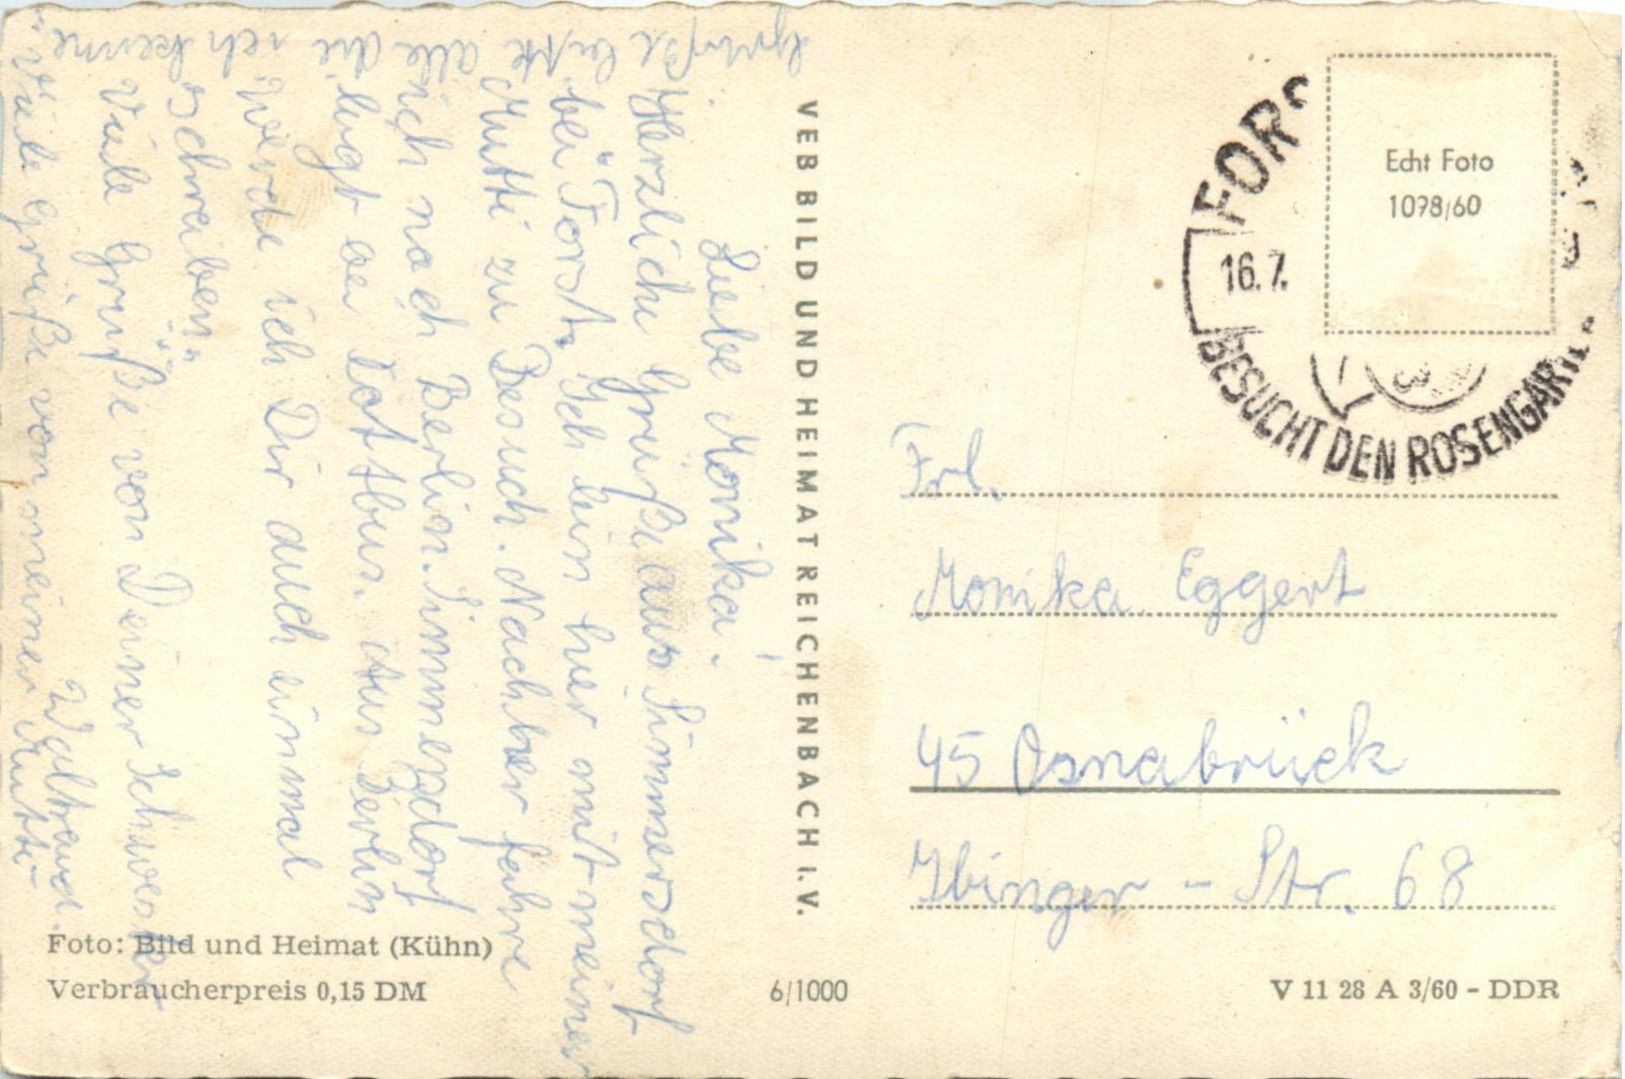 Liebe Monika!
Herzliche Grüße aus Simmersdorf
bei Forst. Ich bin hier mit meiner
Mutti zu Besuch. Nachher fahre
ich nach Berlin. Simmersdorf
liegt bei Cottbus. Aus Berlin
werde ich Dir auch einmal
schreiben.
Viele Grüße von Deiner Schwester
Waltraud.
Viele Grüße von meiner Mutti
Grüße bitte alle die ich kenne
VEB BILD UND HEIMAT REICHENBACH I. V.
Echt Foto
1098/60
FORS
16.7.
BESUCHT DEN ROSENGARTEN
Frl.
Monika Eggert
45 Osnabrück
Iburger - Str. 68
Foto: Bild und Heimat (Kühn)
Verbraucherpreis 0,15 DM
6/1000
V 11 28 A 3/60 - DDR